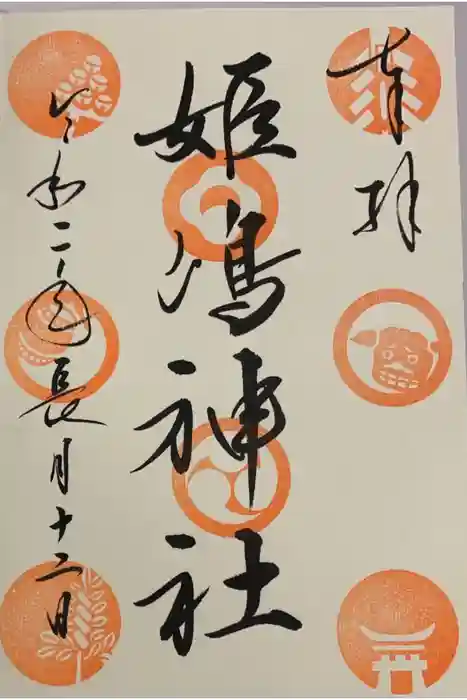 奉拝
姫嶋神社
令和二年長月十二日